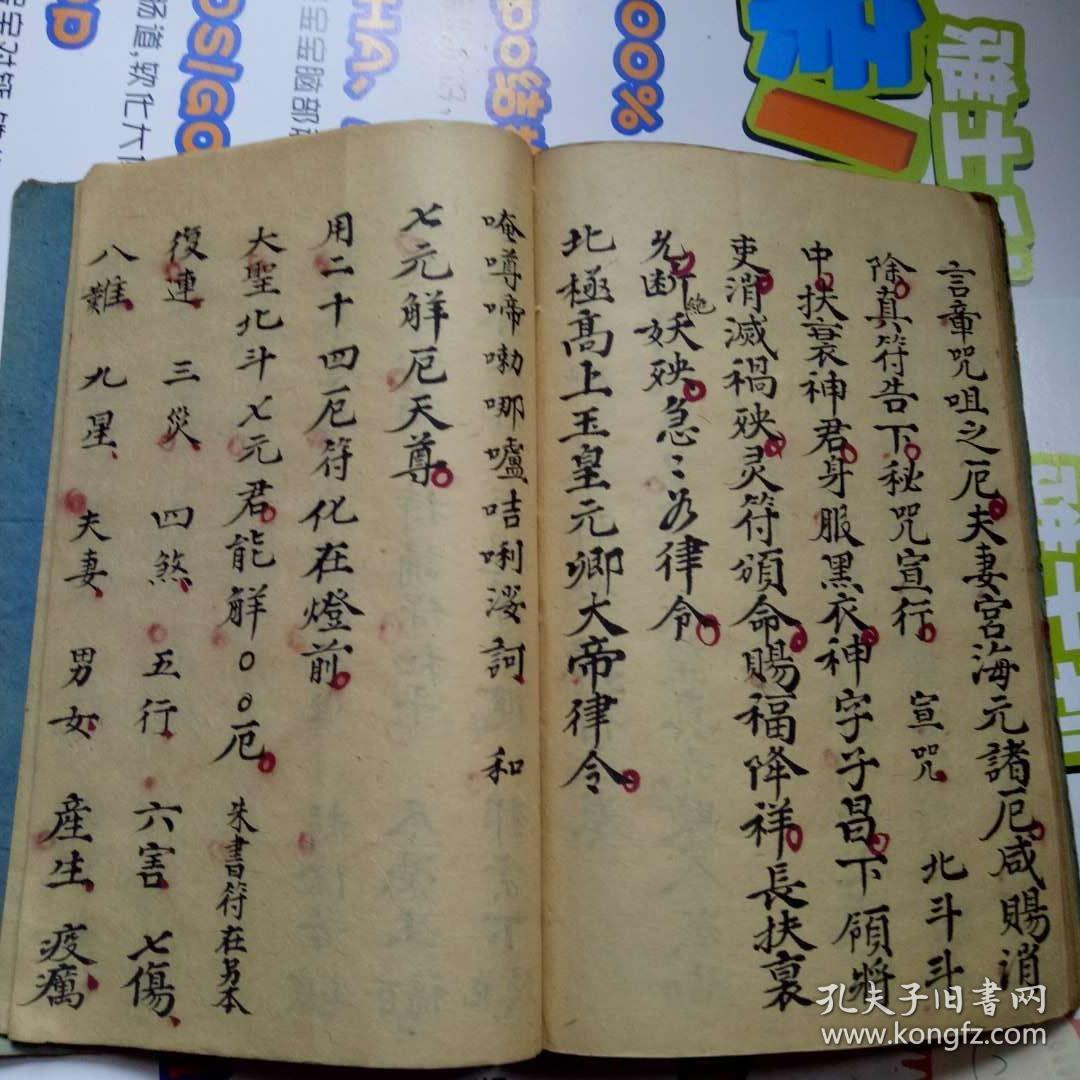 言章咒咀之厄夫妻宫海元諸厄咸賜消
除真符告下秘咒宣行 宣咒 北斗斗
中扶衰神君身服黑衣神字子昌下領將
吏消滅禍殃灵符頒命賜福降祥長扶衰
允断絶妖殃急〻如律令
北極高上玉皇元卿大帝律令
唵噂啼嘞哪嚧咭唎娑訶 和
七元解厄天尊
用二十四厄符化在燈前
大聖北斗七元君能解〇〇厄 朱書符在另本
復連 三災 四煞 五行 六害 七傷
八難 九星 夫妻 男女 産生 疫癘
孔夫子旧书网
www.kongfz.com